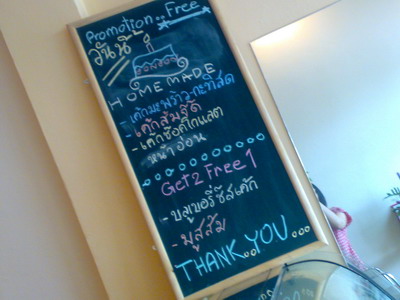 Promotion..Free
วันนี้
HOMEMADE
-เค้กมะพร้าว-กะทิสด
-เค้กส้มรัด
-เค้กช็อคโกแลต
หน้าอ่อน
Get 2 Free 1
-บลูเบอรี่ชีสเค้ก
-มูสส้ม
THANK YOU...